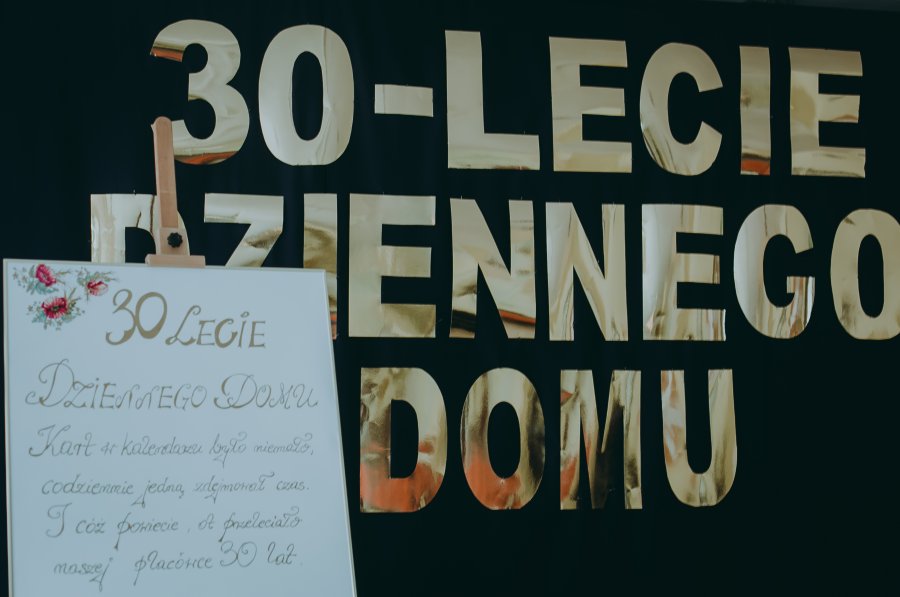 30-LECIE
DZIENNEGO
DOMU
30 LECIE
DZIENNEGO DOMU
Kart w kalendarzu było niemało,
codziennie jedną zdejmował czas.
I cóż powiecie, ot przeleciało
naszej placówce 30 lat.